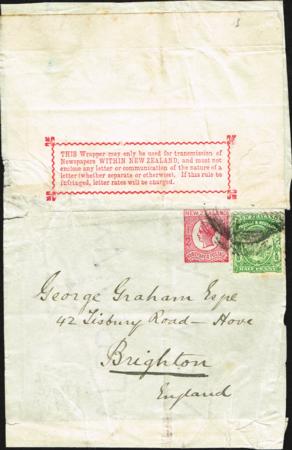 THIS Wrapper may only be used for transmission of
Newspapers WITHIN NEW ZEALAND, and must not
enclose any letter or communication of the nature of a
letter (whether separate or otherwise). If this rule be
infringed, letter rates will be charged.
NEW ZEALAND
NEW ZEALAND
HALFPENNY
HALF PENNY
George Graham Esqe
42 Tisbury Road — Hove
Brighton
England